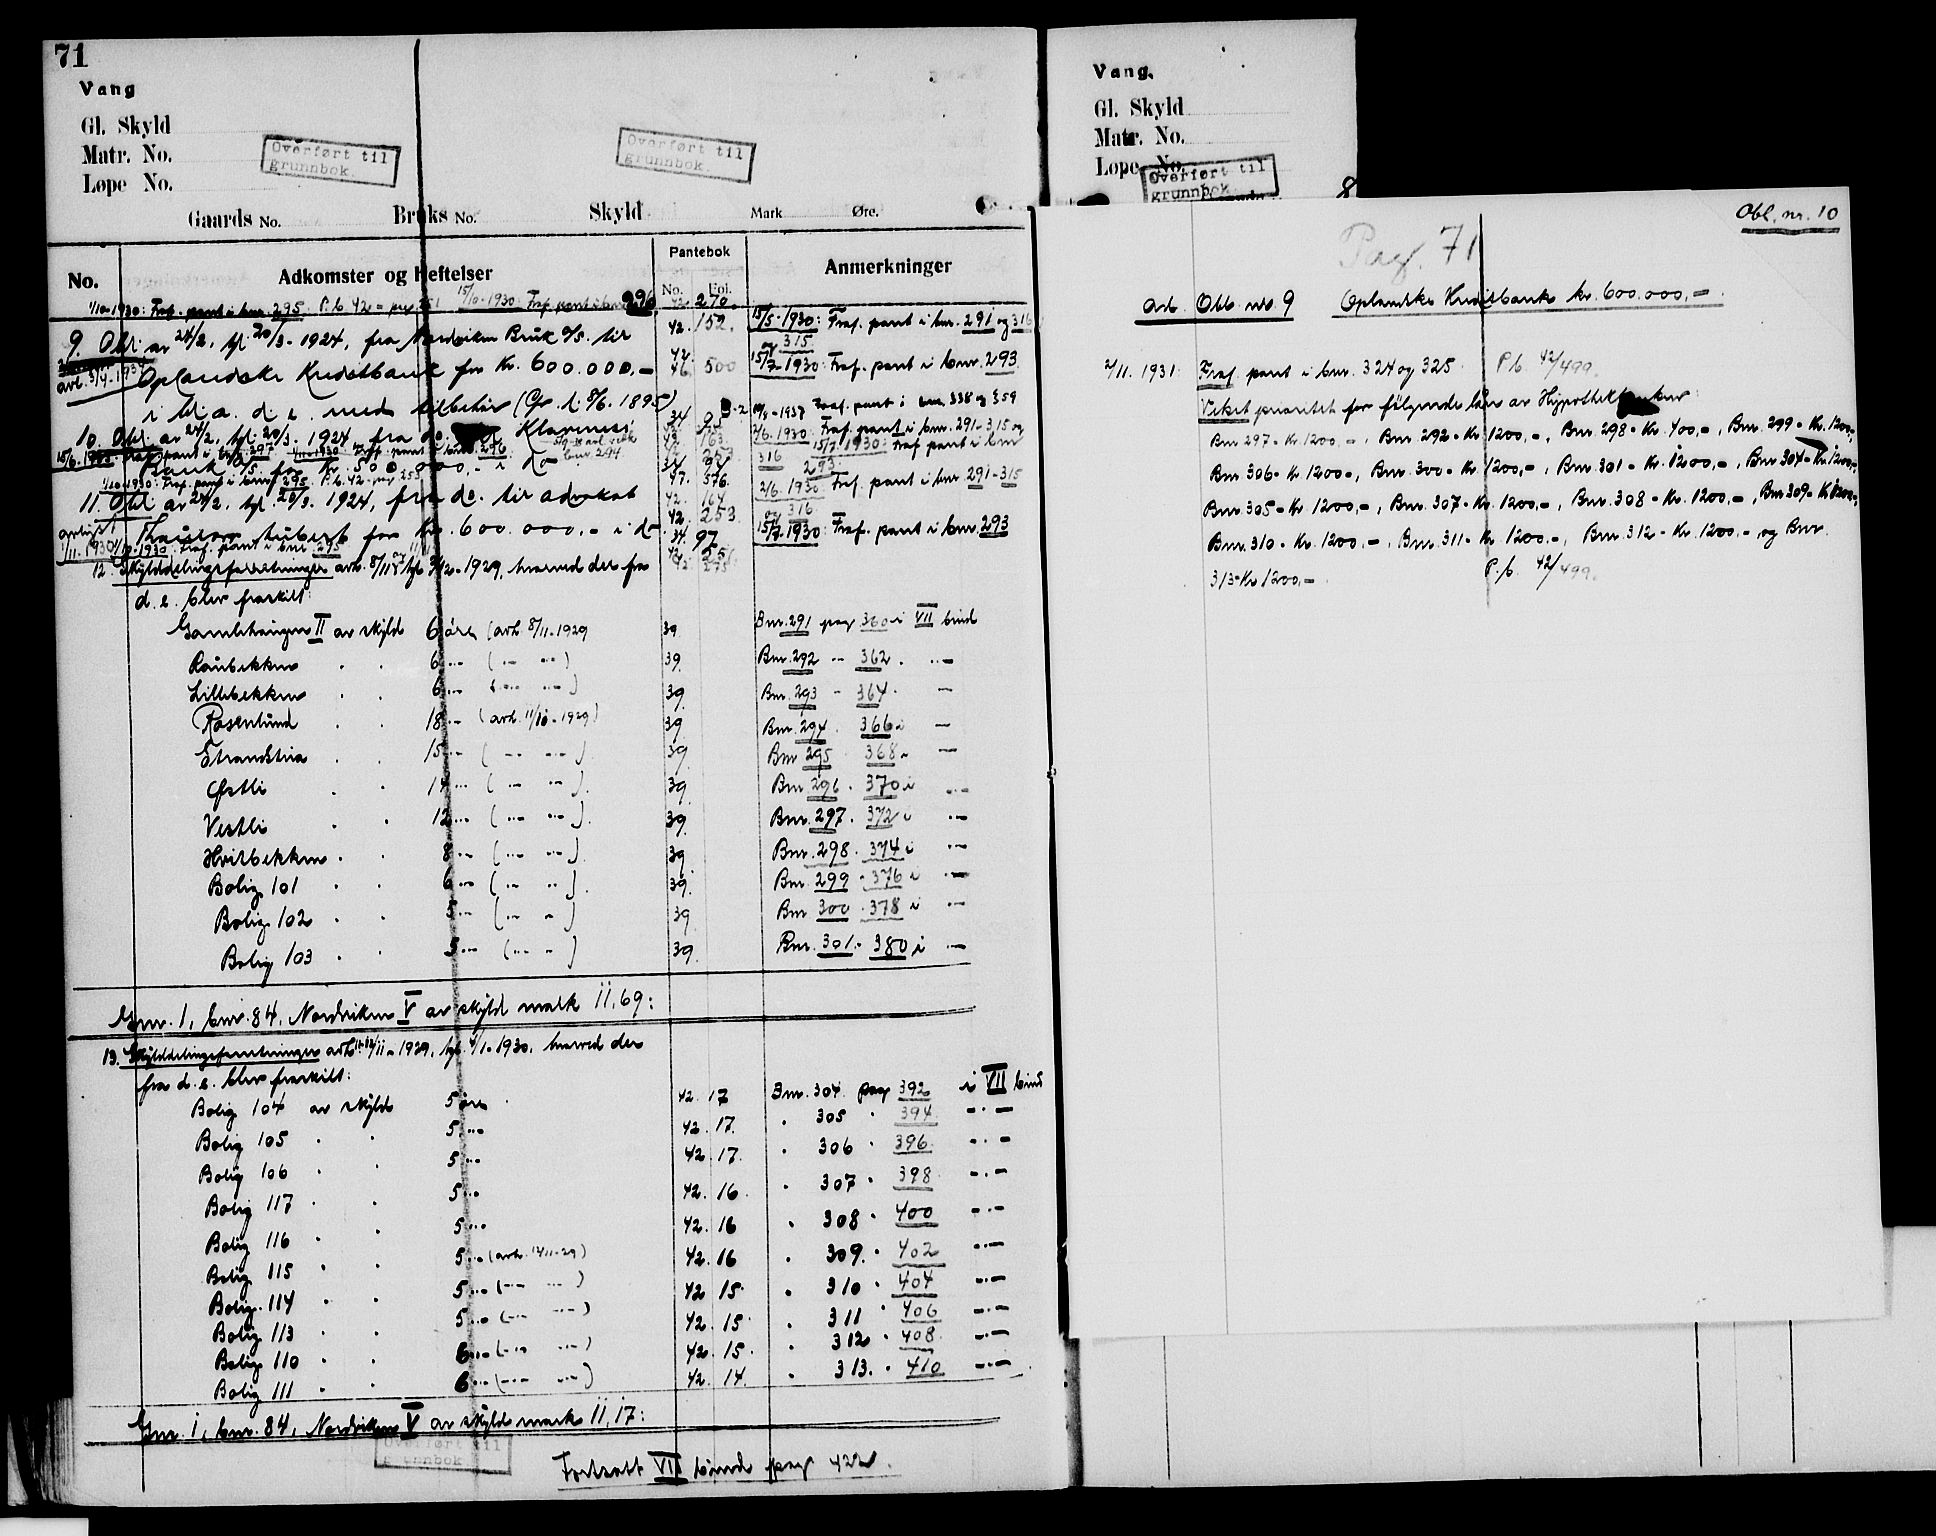 71
Vang
Gl. Skyld
Matr. No.
Løpe No.
Overført til
grunnbok.
Overført til
grunnbok.
Gaards No. Bruks No. Skyld Mark Øre.
No. Adkomster og Heftelser Pantebok No. Fol. Anmerkninger
1/10-1930: Fraf. pant i bnr. 295. P.b. 42 - pag 251 15/10-1930 Fraf. pant i bnr. 296 42 270
9. Obl. av 24/2, tgl 20/3-1924, fra Nordviken Bruk A/S. til 42. 152. 15/5-1930: Fraf. pant i bnr. 291 og 316
og 315
Oplandske Kreditbank for Kr. 600.000,- 42. 500 15/7-1930: Fraf. pant i bnr. 293
i bl. a. d. e. med tilbehør (Cfr. l. 8/6. 1895) 34 95 Fraf. pant i bnr. 338 og 359
10. Obl. av 24/2, tgl. 20/3-1924 fra do. Klaveness 42. 163. 2/6. 1930: Fraf. pant i bnr. 291-315 og
316 15/7 1930: Fraf pant i bnr
293.
Bank A/S for Kr. 500 000,- i do
1/10-1930: Fraf. pant i bnr 295 P.b. 42 - pag 253 47. 576.
11. Obl av 24/2, tgl. 20/3. 1924, fra do. til advokat 42. 164 2/6. 1930: Fraf. pant i bnr 291-315
og 316
for Kr. 600.000,- i do 42. 253. 15/7-1930: Fraf. pant i bnr. 293
34 97
12. Skylddelingsforretninger avh. 8/11 tgl 9/12-1929, hvorved der fra
d. e. blev fraskilt:
II av skyld 6 øre (avh. 8/11-1929 39 Bnr. 291 pag 360 i VII bind
Raubekken 6 39. Bnr. 292 - 362.
Lillebekken 6 39 Bnr. 293 - 364.
Rosenlund 18 (avh. 11/10-1929) 39 Bnr. 294. 366 i
15 39 Bnr 295 368 i
Østli 14 39 Bnr 296. 370 i
Vestli 12 39. Bnr. 297. 372 i
Hvitbekken 8 39 Bnr. 298. 374 i
Bolig 101 6 39. Bnr. 299 - 376 i
Bolig 102 5 39 Bnr 300. 378 i
Bolig 103 5 39. Bnr. 301. 380 i
Gnr. 1, bnr. 84, Nordviken V av skyld mark 11,69:
13. Skylddelingsforretninger avh. 11-12/11-1929, tgl. 4/1-1930, hvorved der
fra d. e. blev fraskilt:
Bolig 104 av skyld 5 øre 42. 17 Bnr. 304 pag 392 i VII bind
Bolig 105 5 42. 17. 305 394
Bolig 106 5 42. 17. 306 396.
Bolig 117 5 42. 16. 307 398
Bolig 116 5 42. 16 308 400
Bolig 115 5 (avh. 12/11-29) 42. 16 309. 402
Bolig 114 5 42 15. 310 404
Bolig 113 5 42. 15. 311 406
Bolig 110 6 42. 15. 312 408.
Bolig 111 6 42. 14. 313. 410
Gnr. 1, bnr. 84, Nordviken V av skyld mark 11,17:
Overført til
grunnbok
Fortsatt VII bind pag 422.
Vang.
Gl. Skyld
Matr. No.
Løpe No.
Overført til
grunnbok.
8
Obl. nr. 10
Pag. 71
ad. Obl. nr. 9 Oplandske Kreditbank kr. 600.000,-
2/11. 1931: Fraf. pant i bnr. 324 og 325. P.b. 42/499.
Veket prioritet for følgende lån av Hypothekbanken:
Bnr 297 - Kr 1200,-, Bnr. 292 - Kr 1200,-, Bnr. 298 - Kr. 400,-, Bnr. 299 - Kr. 1200,-,
Bnr 306 - Kr 1200,-, Bnr. 300 - Kr. 1200,-, Bnr. 301 - Kr. 1200,-, Bnr 304 - Kr 1200,-,
Bnr. 305 - Kr. 1200,-, Bnr. 307 - Kr. 1200,-, Bnr. 308 - Kr. 1200,-, Bnr 309 - Kr 1200,-,
Bnr. 310 - Kr. 1200,-, Bnr. 311 - Kr 1200,-, Bnr. 312 - Kr. 1200,- og Bnr.
313 - Kr 1200,-. P.b. 42/499.